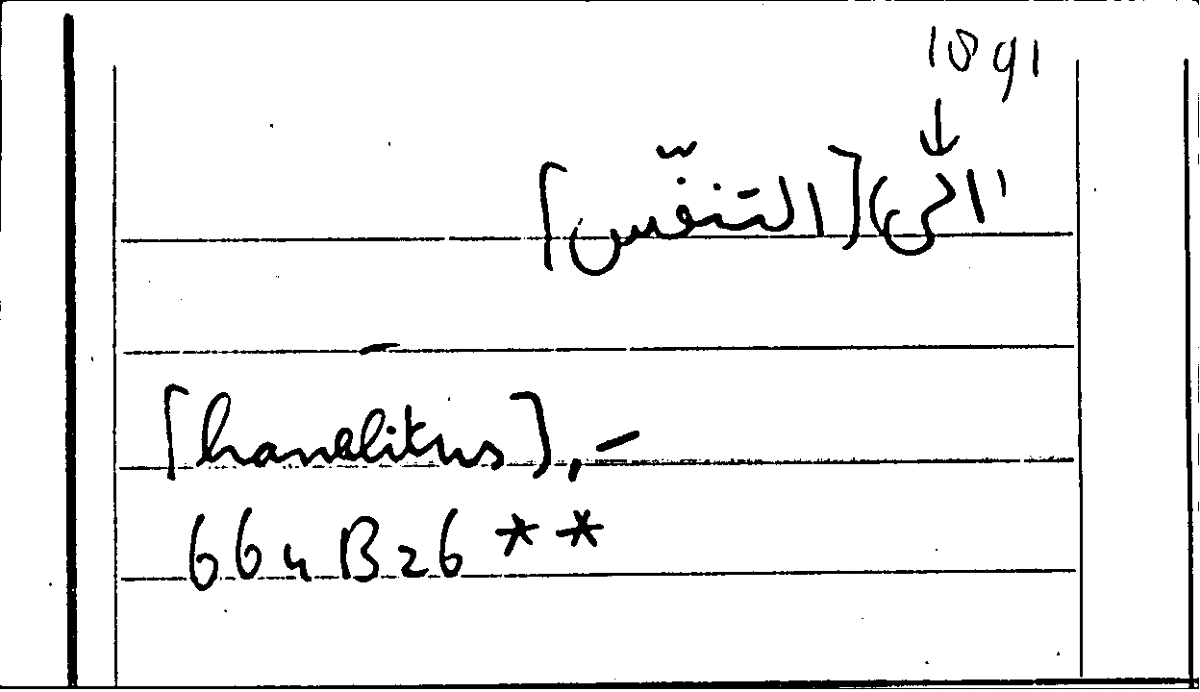 1891
↓
الى) [التنفّس]
[hanelitus], -
664 B 26 **